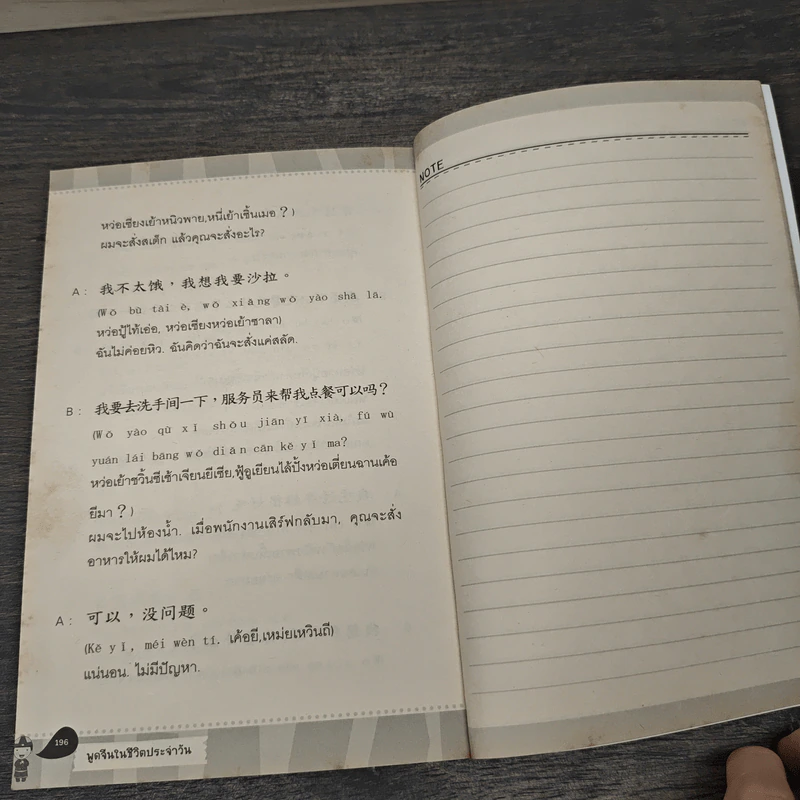 หว่อเซียงเย้าหนิวพาย,หนี่เย้าเชิ้นเมอ ?)
ผมจะสั่งสเต็ก แล้วคุณจะสั่งอะไร?
A : 我不太饿，我想我要沙拉。
(Wǒ bù tài è, wǒ xiǎng wǒ yào shā lā,
หว่อปู้ไท้เอ่อ, หว่อเซียงหว่อเย้าซาลา)
ฉันไม่ค่อยหิว. ฉันคิดว่าฉันจะสั่งแค่สลัด.
B : 我要去洗手间一下，服务员来帮我点餐可以吗？
(Wǒ yào qù xǐ shǒu jiān yī xià, fú wù
yuán lái bāng wǒ diǎn cān kě yǐ ma?
หว่อเย้าชวิ้นซีเซ้าเจียนยีเซีย,ฟู้อูเยียนไล้ปั้งหว่อเตี่ยนฉานเค้อ
ยีมา ? )
ผมจะไปห้องน้ำ. เมื่อพนักงานเสิร์ฟกลับมา, คุณจะสั่ง
อาหารให้ผมได้ไหม?
A : 可以，没问题。
(Kě yǐ, méi wèn tí. เค้อยี,เหม่ยเหวินถี)
แน่นอน. ไม่มีปัญหา.
196
พูดจีนในชีวิตประจำวัน
NOTE